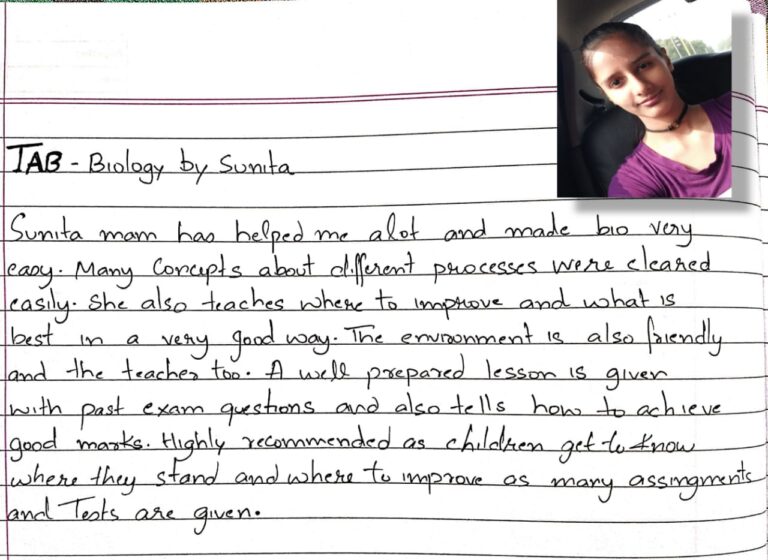 TAB - Biology by Sunita
Sunita mam has helped me alot and made bio very
easy. Many Concepts about different processes were cleared
easily. She also teaches where to improve and what is
best in a very good way. The environment is also friendly
and the teacher too. A well prepared lesson is given
with past exam questions and also tells how to achieve
good marks. Highly recommended as children get to know
where they stand and where to improve as many assingments
and Tests are given.